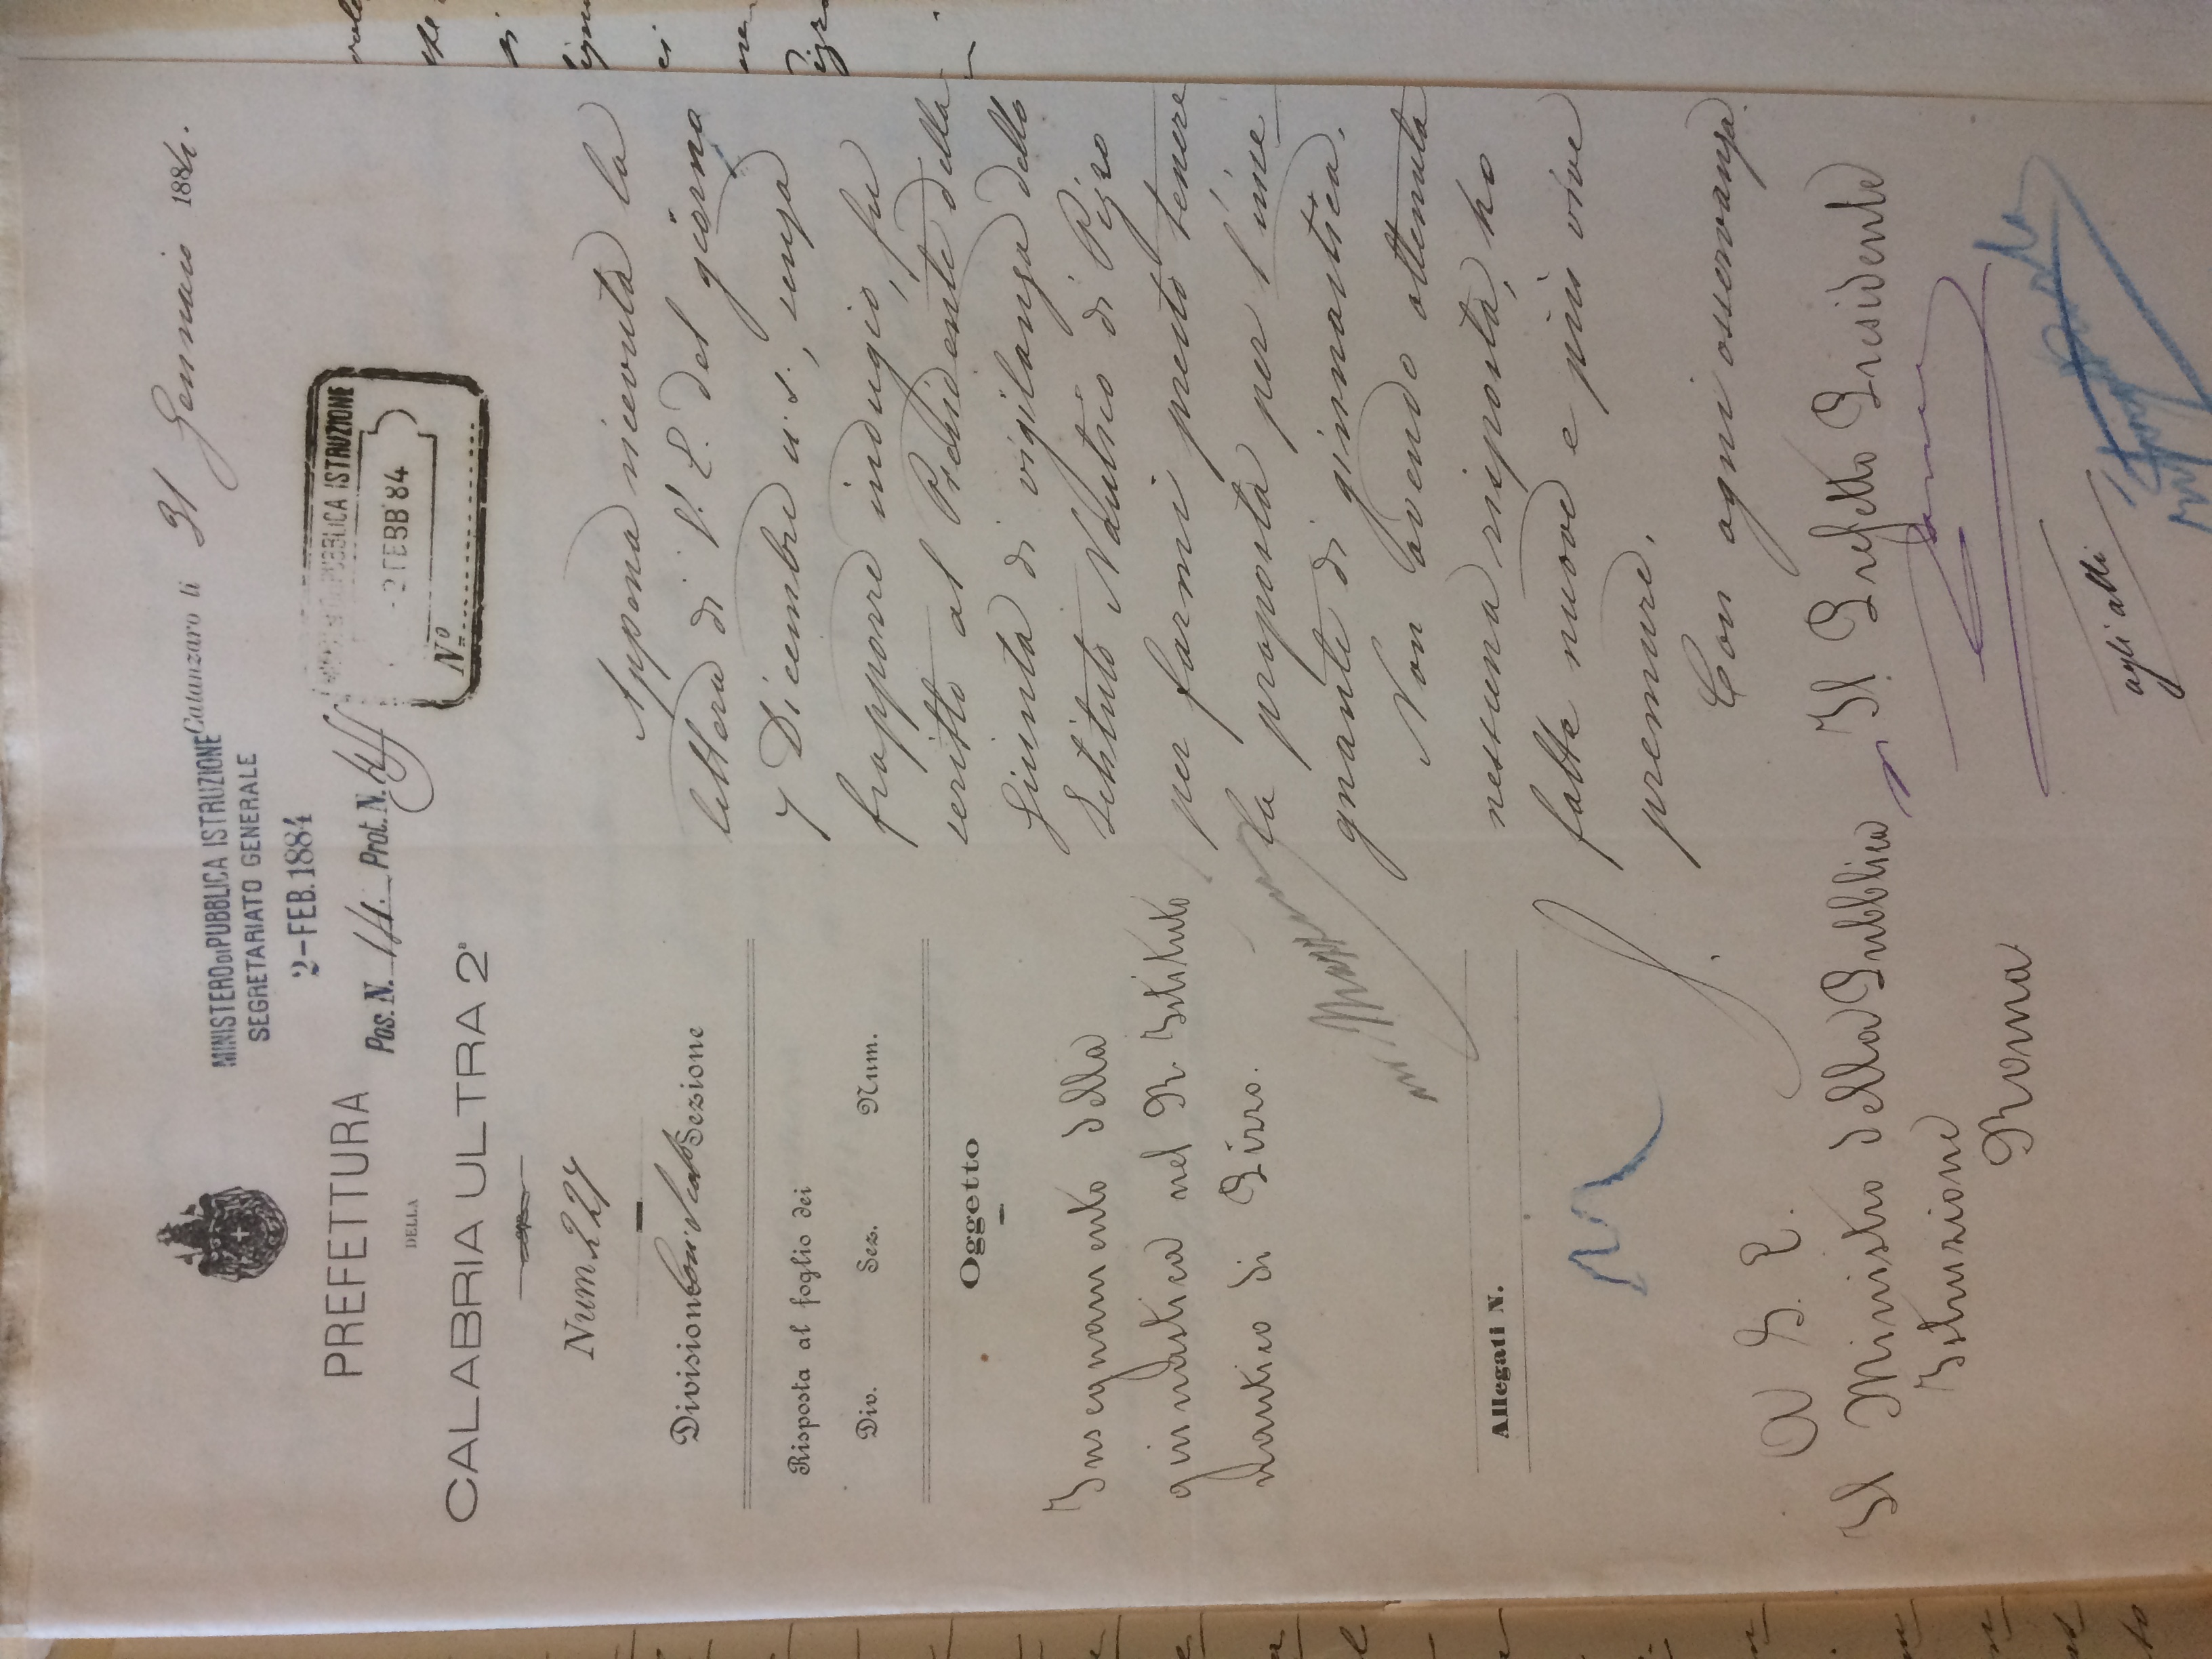 Catanzaro li 31 Gennaio 1884.
MINISTERO DI PUBBLICA ISTRUZIONE
SEGRETARIATO GENERALE
2-FEB.1884
Pos. N. 14. Prot. N.
PUBBLICA ISTRUZIONE
2 FEBB 84
N.º
PREFETTURA
DELLA
CALABRIA ULTRA 2ª
Num. 227
Divisione Sezione
Risposta al foglio dei
Div. Sez. Num.
Oggetto
Insegnamento della
ginnastica nel R. Istituto
nautico di Pizzo.
Allegati N.
A S. E.
Il Ministro della Pubblica
Istruzione
Roma
Appena ricevuta la
lettera di S. E. del giorno
7 Dicembre u. s., senza
frapporre indugio, fu
scritto al Presidente della
Giunta di vigilanza dello
Istituto Nautico di Pizzo
per farmi presto tenere
la proposta per l'inse
gnante di ginnastica.
Non avendo ottenuta
nessuna risposta, ho
fatte nuove e più vive
premure.
Con ogni osservanza.
Il Prefetto Presidente
agli atti